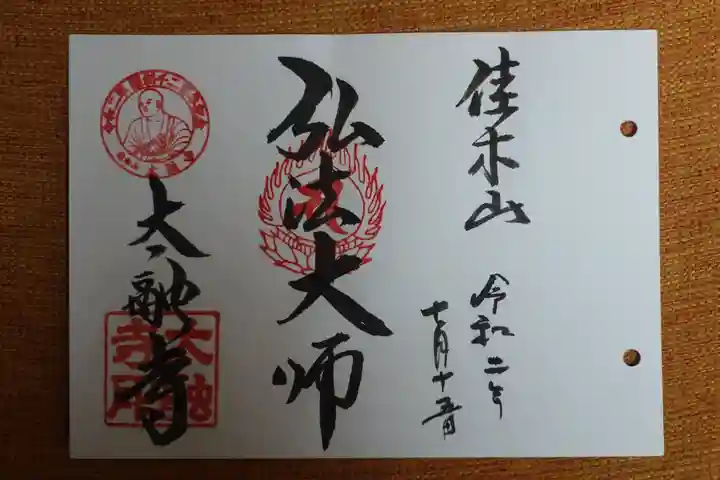 佳木山
令和二年
十一月十五日
弘法大師
太融寺
太融
寺印